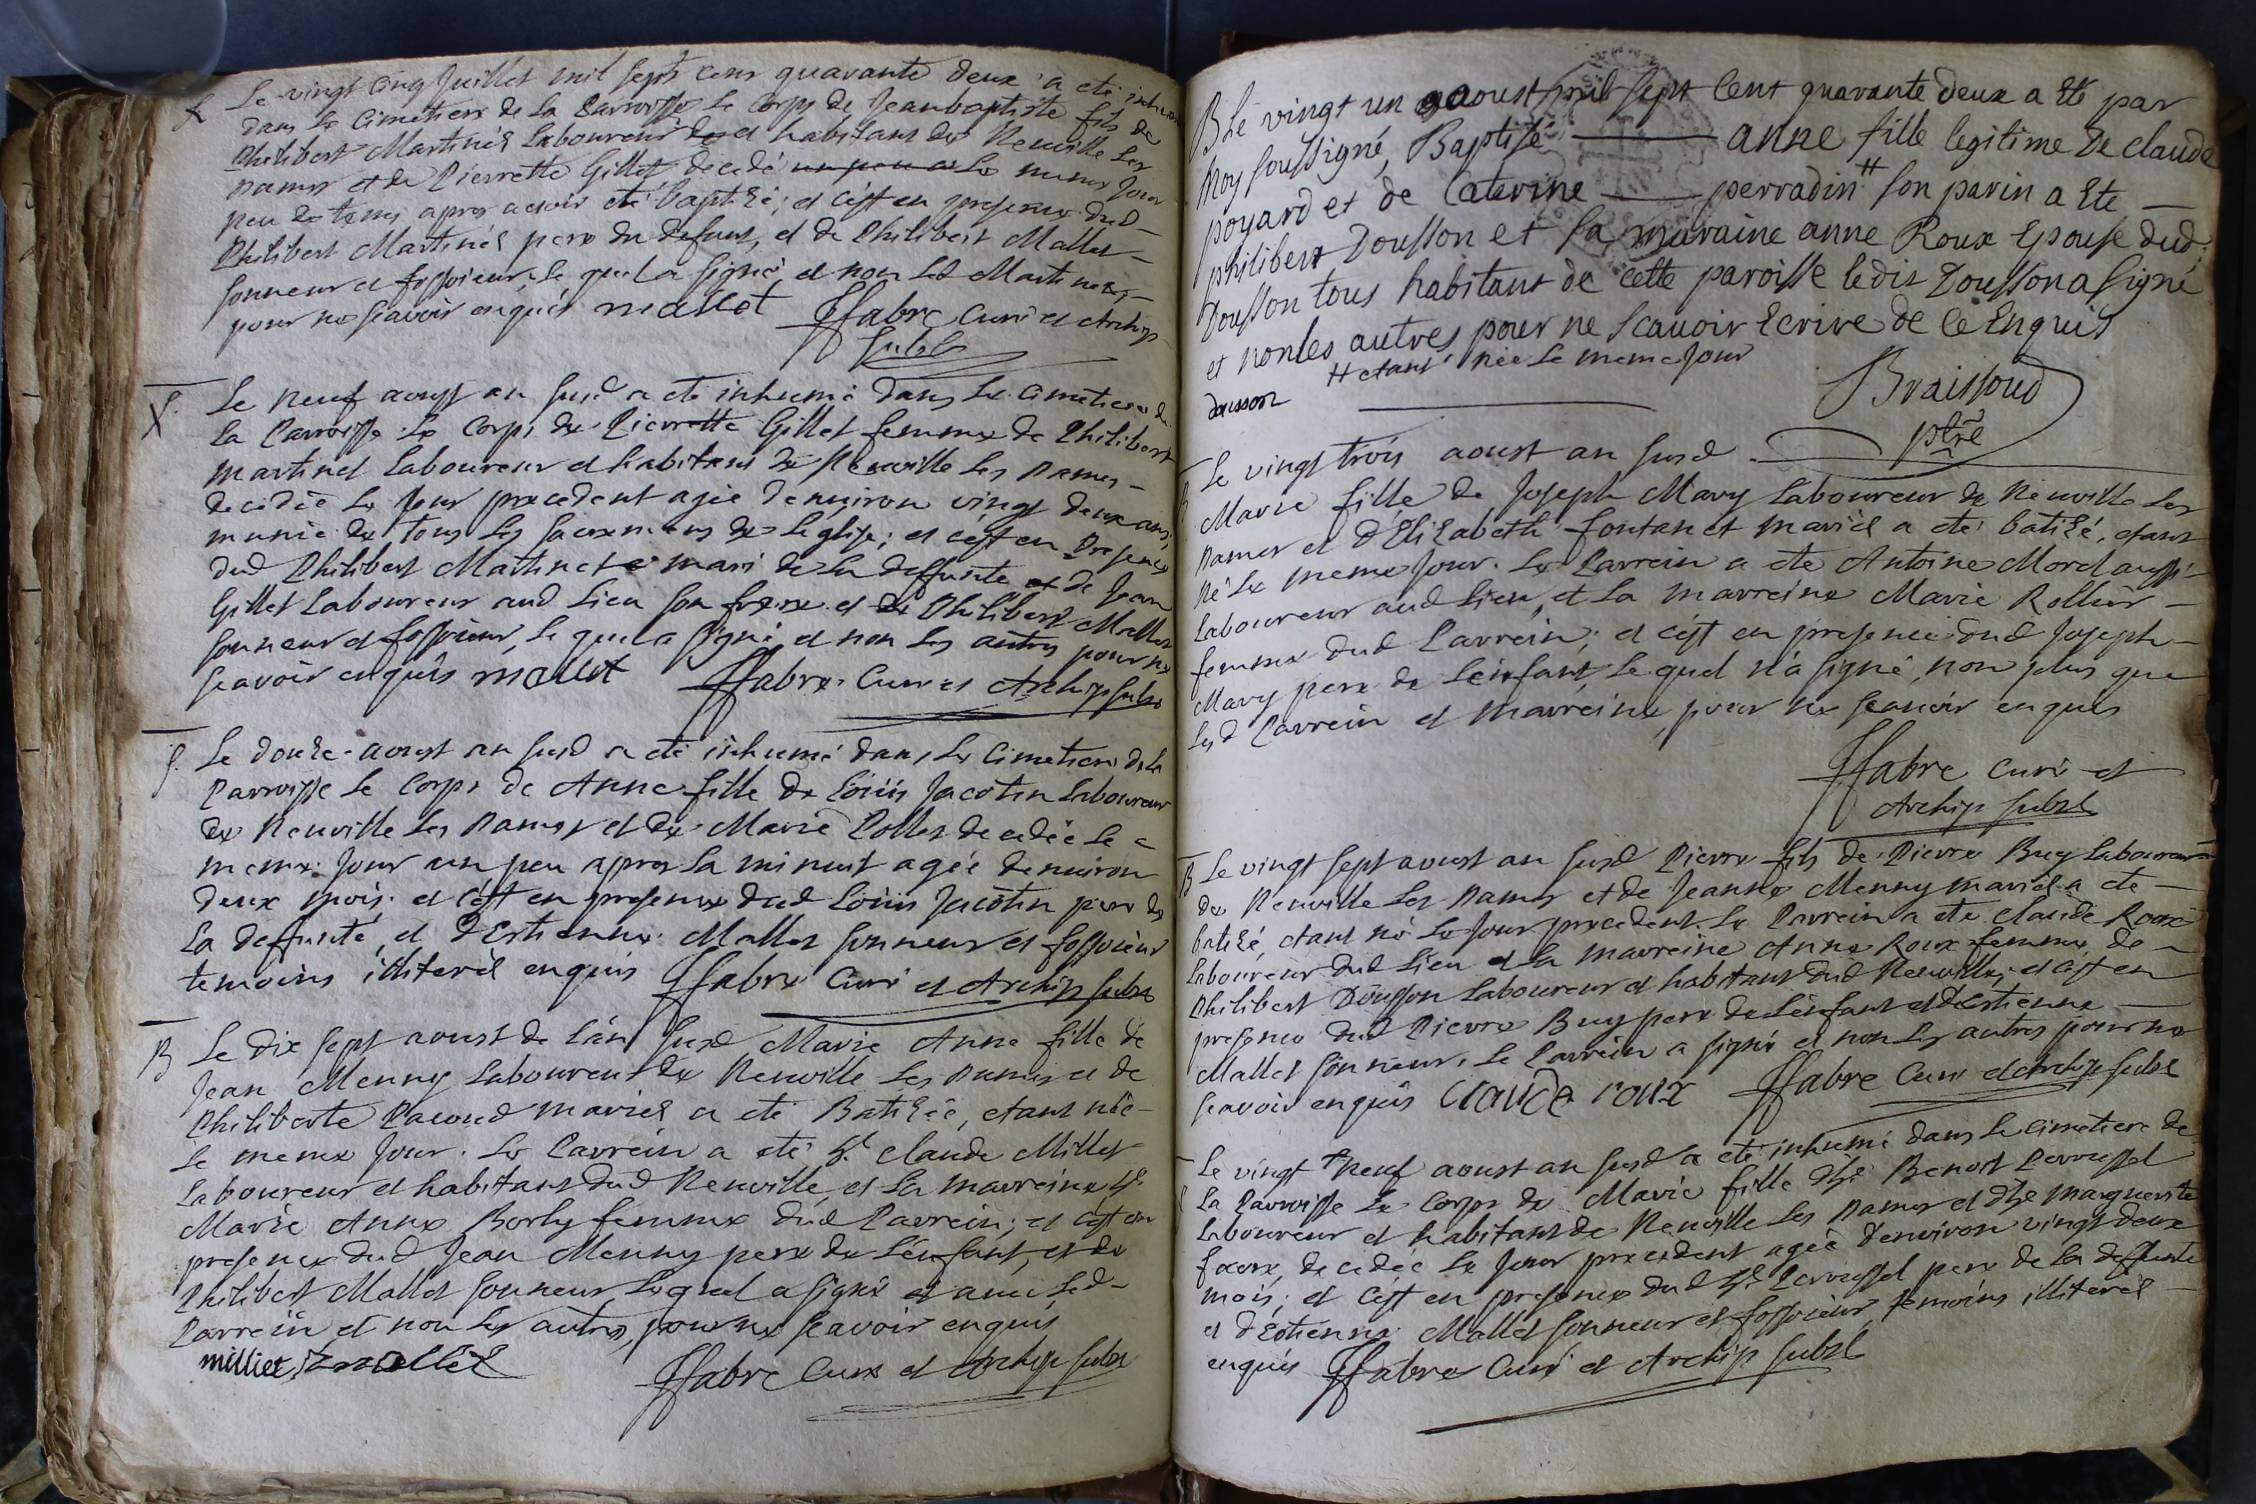 S. Le vingt cinq Juillet mil sept cens quarante deux a eté inhumé
dans le Cimetiere de la Parroisse le Corps de Jean baptiste fils de
Philibert Martinet Laboureur et habitant de Neuville les
Dames et de Pierrette Gillet decedé le meme jour
peu de tems apres avoir eté baptizé; et c'est en presence dud
Philibert Martinet pere du defunt, et de Philibert Mallet
sonneur et fossoieur, le quel a signé, et non led Martinet,
pour ne sçavoir enquis mallet ffabre Curé et Archip
subst
S. Le neuf aoust an susd a eté inhumé dans le Cimetiere de
la Parroisse le Corps de Pierrette Gillet femme de Philibert
Martinet Laboureur et habitant de Neuville les Dames
decedée le jour precedent agée denviron vingt deux ans,
munie de tous les sacremens de l'eglise; et c'est en presence
dud Philibert Martinet mari de la deffunte et de Jean
Gillet Laboureur aud lieu son frere et de Philibert Mallet
sonneur et fossoieur, le quel a signé, et non les autres pour ne
sçavoir enquis mallet ffabre Curé et Archip subst
S. Le douze aoust an susd a eté inhumé dans le Cimetiere de la
Parroisse le Corps de Anne fille de Loüis Jacotin Laboureur
de Neuville les Dames et de Marie Pollet decedée le
meme jour un peu apres la minuit agée denviron
deux mois. et c'est en presence dud Loüis Jacotin pere de
la deffunte, et d'Estienne Mallet sonneur et fossoieur
temoins illiterés enquis ffabre Curé et Archip subst
B Le dix sept aoust de l'an susd Marie Anne fille de
Jean Menny Laboureur de Neuville les Dames et de
Philiberte Pacoud mariés a eté Batizée, etant née
le meme jour. Le Parrein a eté Sr. Claude Milliet
Laboureur et habitant dud Neuville, et la marreine
Marie Anne Borly femme dud Parrein; et c'est en
presence dud Jean Menny pere de l'enfant, et de
Philibert Mallet sonneur lequel a signé et avec led
Parrein et non les autres, pour ne sçavoir enquis
milliet, mallet ffabre Curé et Archip subst
B Le vingt un aoust mil sept Cent quarante deux a été par
moy soussigné, Baptisé anne fille legitime De claude
poyard et de Caterine perradin # son parin a Ete
philibert Dousson et sa maraine anne Roux Epouse dud:
Dousson tous habitant de cette paroisse ledit Dousson a Signé
et non les autres pour ne Scauoir Ecrire de Ce Enquis
# etant née le meme jour
dousson Braissoud
ptre
B Le vingt trois aoust an susd
Marie fille de Joseph Mavy Laboureur de Neuville les
Dames et d'Elizabeth fontanet mariés a eté batizé, etant
né le meme jour. Le Parrein a ete Antoine Morel aussi
Laboureur aud lieu, et la marreine Marie Rollier
femme dud Parrein; et c'est en presence dud Joseph
Mavy pere de l'enfant, le quel n'a signé, non plus que
lesd Parrein et marreine, pour ne sçavoir enquis
ffabre Curé et
Archip subst
B Le vingt sept aoust an susd Pierre fils de Pierre Buy Laboureur
de Neuville les Dames et de Jeanne Menny mariés a ete
batizé, etant né le jour precedent. Le Parrein a ete Claude Roux
Laboureur dud lieu et la marreine Anne Roux femme de
Philibert Dousson Laboureur et habitant dud Neuville; et c'est en
presence dud Pierre Buy pere de l'enfant et d'Estienne
Mallet sonneur. Le Parrein a signé et non les autres pour ne
sçavoir enquis Claude roux ffabre Curé et Archip subst
Le vingt neuf aoust an susd a eté inhumé dans le Cimetiere de
la Parroisse le Corps de Marie fille d'hé Benoit Perrussel
Laboureur et habitant de Neuville les Dames et d'he Marguerite
decedée le jour precedent agée d'environ vingt deux
mois; et c'est en presence dud Perrussel pere de la deffunte
et d'Estienne Mallet sonneur et fossoieur, temoins illiterés
enquis ffabre Curé et Archip subst